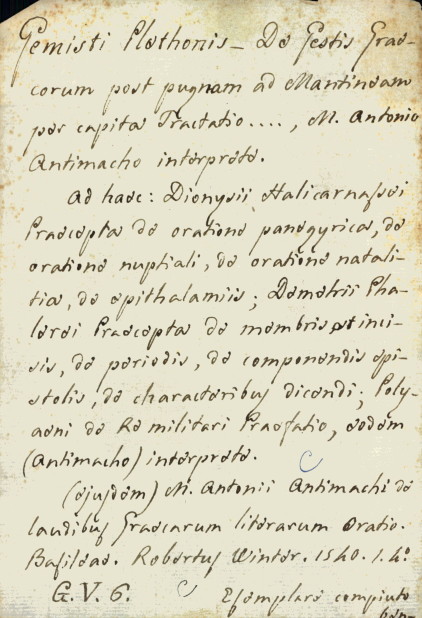 Gemisti Plethonis - De Gestis Grae-
corum post pugnam ad Mantineam
per capita Tractatio...., M. Antonio
Antimacho interprete.
Ad haec: Dionysii Halicarnassei
Praecepta de oratione panegyrica, de
oratione nuptiali, de oratione natali-
tia, de epithalamiis; Demetrii Pha-
lerei Praecepta de membris et inci-
sis, de periodis, de componendis epi-
stolis, de characteribus dicendi; Poly-
aeni de Re militari Praefatio, eodem
(Antimacho) interprete.
(ejusdem) M. Antonii Antimachi de
laudibus Graecarum literarum Oratio.
Basileae. Robertus Winter. 1540. 1. 4.º
G. V. 6. Esemplare compiuto
ben-